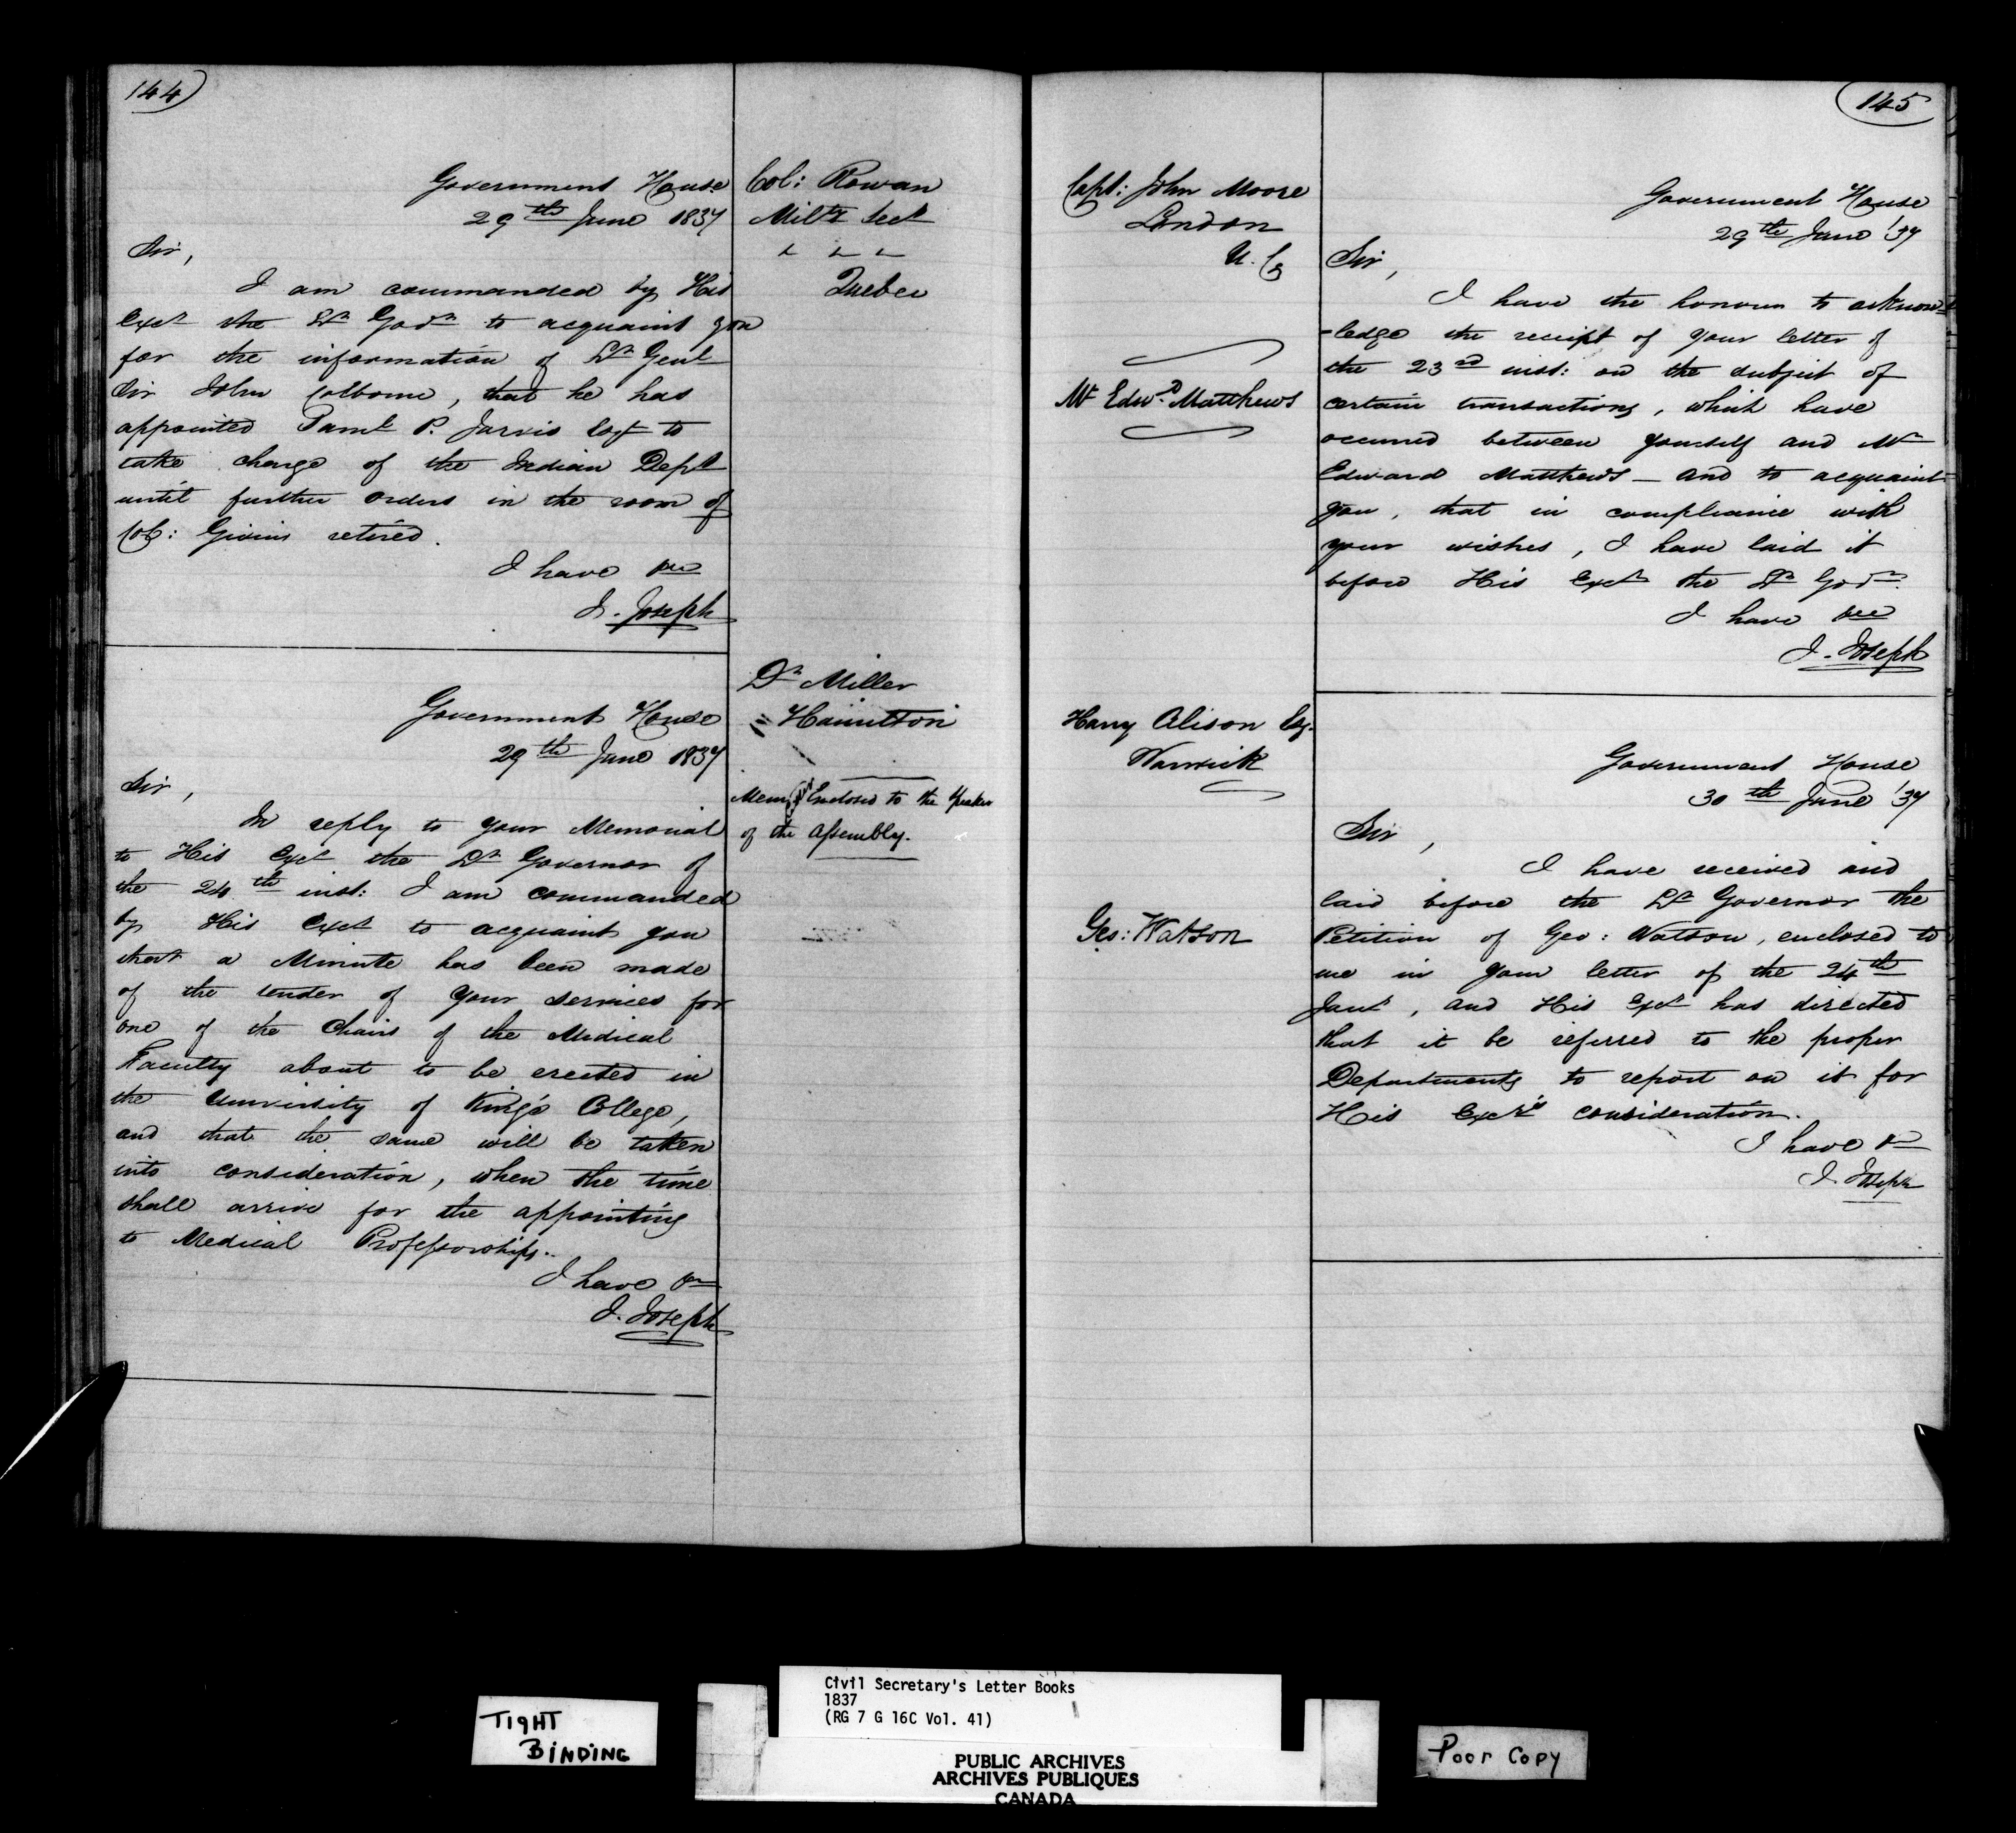 144
Government House
29th June 1837
Col: Rowan
Milty Secy
Quebec
Sir,
I am commanded by His
Excy the Lt Govr to acquaint you
for the information of Lt Genl
Sir John Colborne, that he has
appointed Saml P. Jarvis Esqr to
take charge of the Indian Dept
until further orders in the room of
Col: Givins retired.
I have &c
J. Joseph
Dr Miller
Hamilton
Meml Enclosed to the Speaker
of the Assembly.
Government House
29th June 1837
Sir,
In reply to your Memorial
to His Excy the Lt Governor of
the 24th inst: I am commanded
by His Excy to acquaint you
that a Minute has been made
of the tender of your services for
one of the Chairs of the Medical
Faculty about to be erected in
the University of King's College,
and that the same will be taken
into consideration, when the time
shall arrive for the appointing
to Medical Professorships.
I have &c
J. Joseph
145
Capt: John Moore
London
U. C.
Mr Edwd Matthews
Government House
29th June '37
Sir,
I have the honour to acknow-
-ledge the receipt of your letter of
the 23rd inst: on the subject of
certain transactions, which have
occurred between yourself and Mr
Edward Matthews - and to acquaint
you, that in compliance with
your wishes, I have laid it
before His Excy the Lt Govr.
I have &c
J. Joseph
Harry Alison Esq.
Warwick
Geo: Watson
Government House
30th June '37
Sir,
I have received and
laid before the Lt Governor the
Petition of Geo: Watson, enclosed to
me in your letter of the 24th
Jany, and His Excy has directed
that it be referred to the proper
Departments to report on it for
His Excy's consideration.
I have &c
J. Joseph
TIGHT
BINDING
Civil Secretary's Letter Books
1837
(RG 7 G 16C Vol. 41)
PUBLIC ARCHIVES
ARCHIVES PUBLIQUES
CANADA
Poor Copy